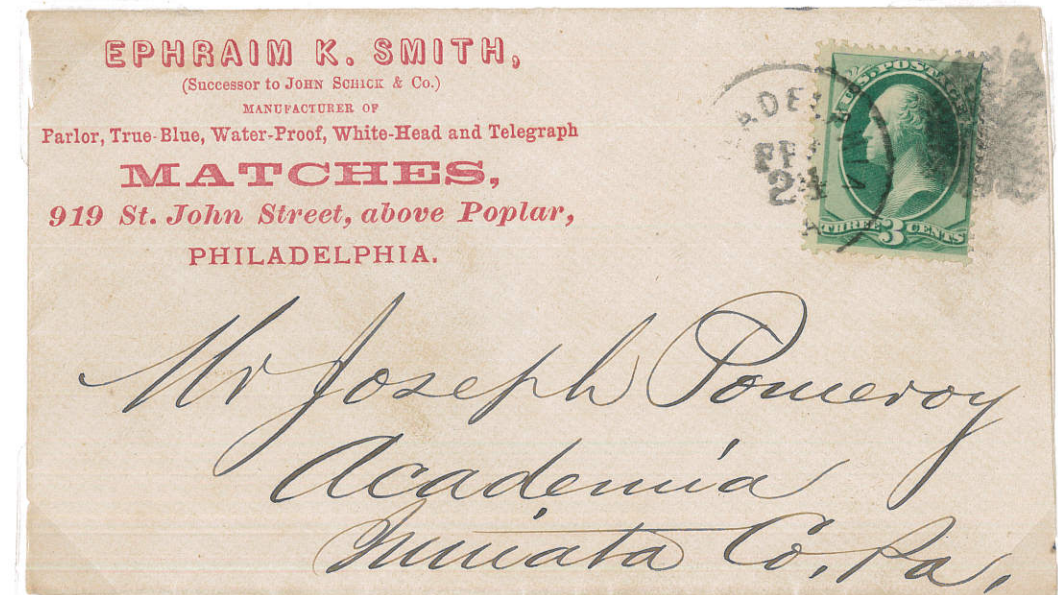 EPHRAIM K. SMITH,
(Successor to JOHN SCHICK & Co.)
MANUFACTURER OF
Parlor, True-Blue, Water-Proof, White-Head and Telegraph
MATCHES,
919 St. John Street, above Poplar,
PHILADELPHIA.
U.S. POSTAGE
THREE 3 CENTS
ADEL
24
PA
Mr Joseph Pomeroy
Academia
Juniata Co. Pa.